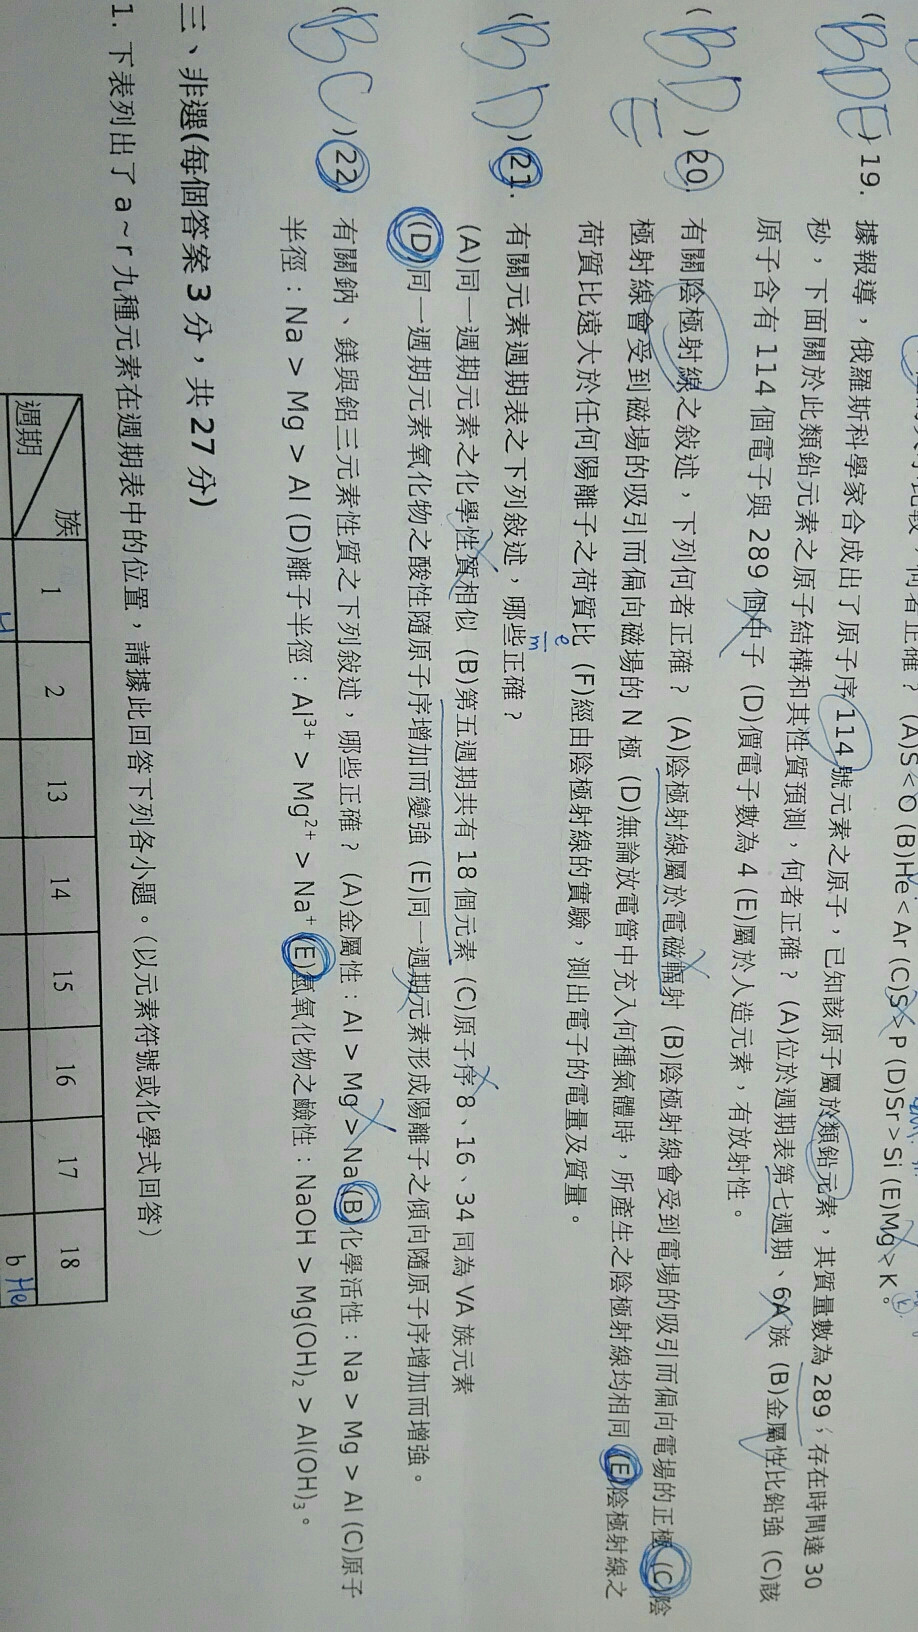 何者正確？ (A)S < O (B)He < Ar (C)S < P (D)Sr > Si (E)Mg > K。
(BDE) 19. 據報導，俄羅斯科學家合成出了原子序 114 號元素之原子，已知該原子屬於類鉛元素，其質量數為 289；存在時間達 30
秒，下面關於此類鉛元素之原子結構和其性質預測，何者正確？ (A)位於週期表第七週期、6A 族 (B)金屬性比鉛強 (C)該
原子含有 114 個電子與 289 個中子 (D)價電子數為 4 (E)屬於人造元素，有放射性。
(BDE) 20. 有關陰極射線之敘述，下列何者正確？ (A)陰極射線屬於電磁輻射 (B)陰極射線會受到電場的吸引而偏向電場的正極 (C)陰
極射線會受到磁場的吸引而偏向磁場的 N 極 (D)無論放電管中充入何種氣體時，所產生之陰極射線均相同 (E)陰極射線之
荷質比遠大於任何陽離子之荷質比 (F)經由陰極射線的實驗，測出電子的電量及質量。
e/m
(BD) 21. 有關元素週期表之下列敘述，哪些正確？
(A)同一週期元素之化學性質相似 (B)第五週期共有 18 個元素 (C)原子序 8、16、34 同為 VA 族元素
(D)同一週期元素氧化物之酸性隨原子序增加而變強 (E)同一週期元素形成陽離子之傾向隨原子序增加而增強。
(BC) 22. 有關鈉、鎂與鋁三元素性質之下列敘述，哪些正確？ (A)金屬性：Al > Mg > Na (B)化學活性：Na > Mg > Al (C)原子
半徑：Na > Mg > Al (D)離子半徑：Al³⁺ > Mg²⁺ > Na⁺ (E)氫氧化物之鹼性：NaOH > Mg(OH)₂ > Al(OH)₃。
三、非選(每個答案 3 分，共 27 分)
1. 下表列出了 a ~ r 九種元素在週期表中的位置，請據此回答下列各小題。（以元素符號或化學式回答）
族 1 2 13 14 15 16 17 18
週期
H b He